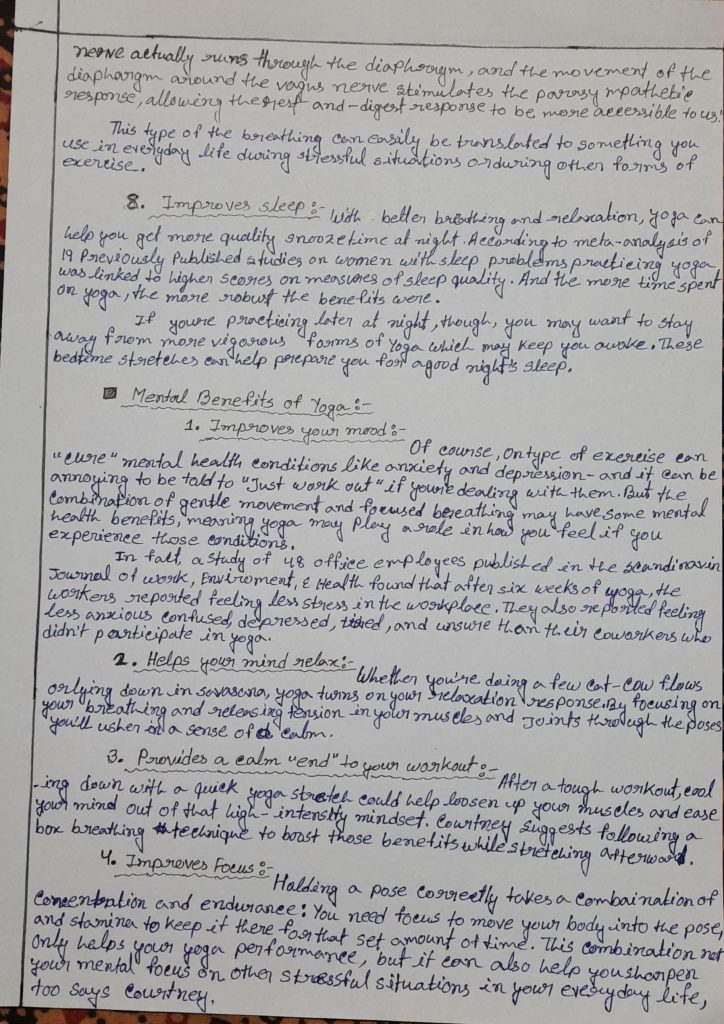 nerve actually runs through the diaphragm, and the movement of the
diaphargm around the vagus nerve stimulates the parasympathetic
response, allowing the rest - and - digest response to be more accessible to us.
This type of the breathing can easily be translated to something you
use in everyday life during stressful situations or during other forms of
exercise.
8. Improves sleep:- With better breathing and relaxation, yoga can
help you get more quality snooze time at night. According to meta-analysis of
19 Previously Published studies on women with sleep problems practicing yoga
was linked to higher scores on measures of sleep quality. And the more time spent
on yoga, the more robust the benefits were.
If youre practicing later at night, though, you may want to stay
away from more vigorous forms of Yoga which may keep you awake. These
bedtime stretches can help prepare you for a good night's sleep.
Mental Benefits of Yoga:-
1. Improves your mood:-
Of course, On type of exercise can
"cure" mental health conditions like anxiety and depression - and it can be
annoying to be told to "Just work out" if youre dealing with them. But the
combination of gentle movement and focused breathing may have some mental
health benefits, meaning yoga may play a role in how you feel if you
experience those conditions.
In fact, a study of 48 office employees published in the Scandinavin
Journal of work, Enviroment, & Health found that after six weeks of yoga, the
workers reported feeling less stress in the workplace. They also reported feeling
less anxious confused, depressed, tired, and unsure than their coworkers who
didn't participate in yoga.
2. Helps your mind relax:-
Whether you're doing a few cat-cow flows
or lying down in savasana, yoga turns on your relaxation response. By focusing on
your breathing and releasing tension in your muscles and Joints through the poses
you'll usher in a sense of calm.
3. Provides a calm "end" to your workout:-
After a tough workout, cool
-ing down with a quick yoga stretch could help loosen up your muscles and ease
your mind out of that high-intensity mindset. Courtney suggests following a
box breathing technique to boost those benefits while stretching afterward.
4. Improves Focus:-
Holding a pose correctly takes a combaination of
concentration and endurance: You need focus to move your body into the pose,
and stamina to keep it there for that set amount of time. This combination not
only helps your yoga performance, but it can also help you sharpen
your mental focus on other stressful situations in your everyday life,
too says Courtney.